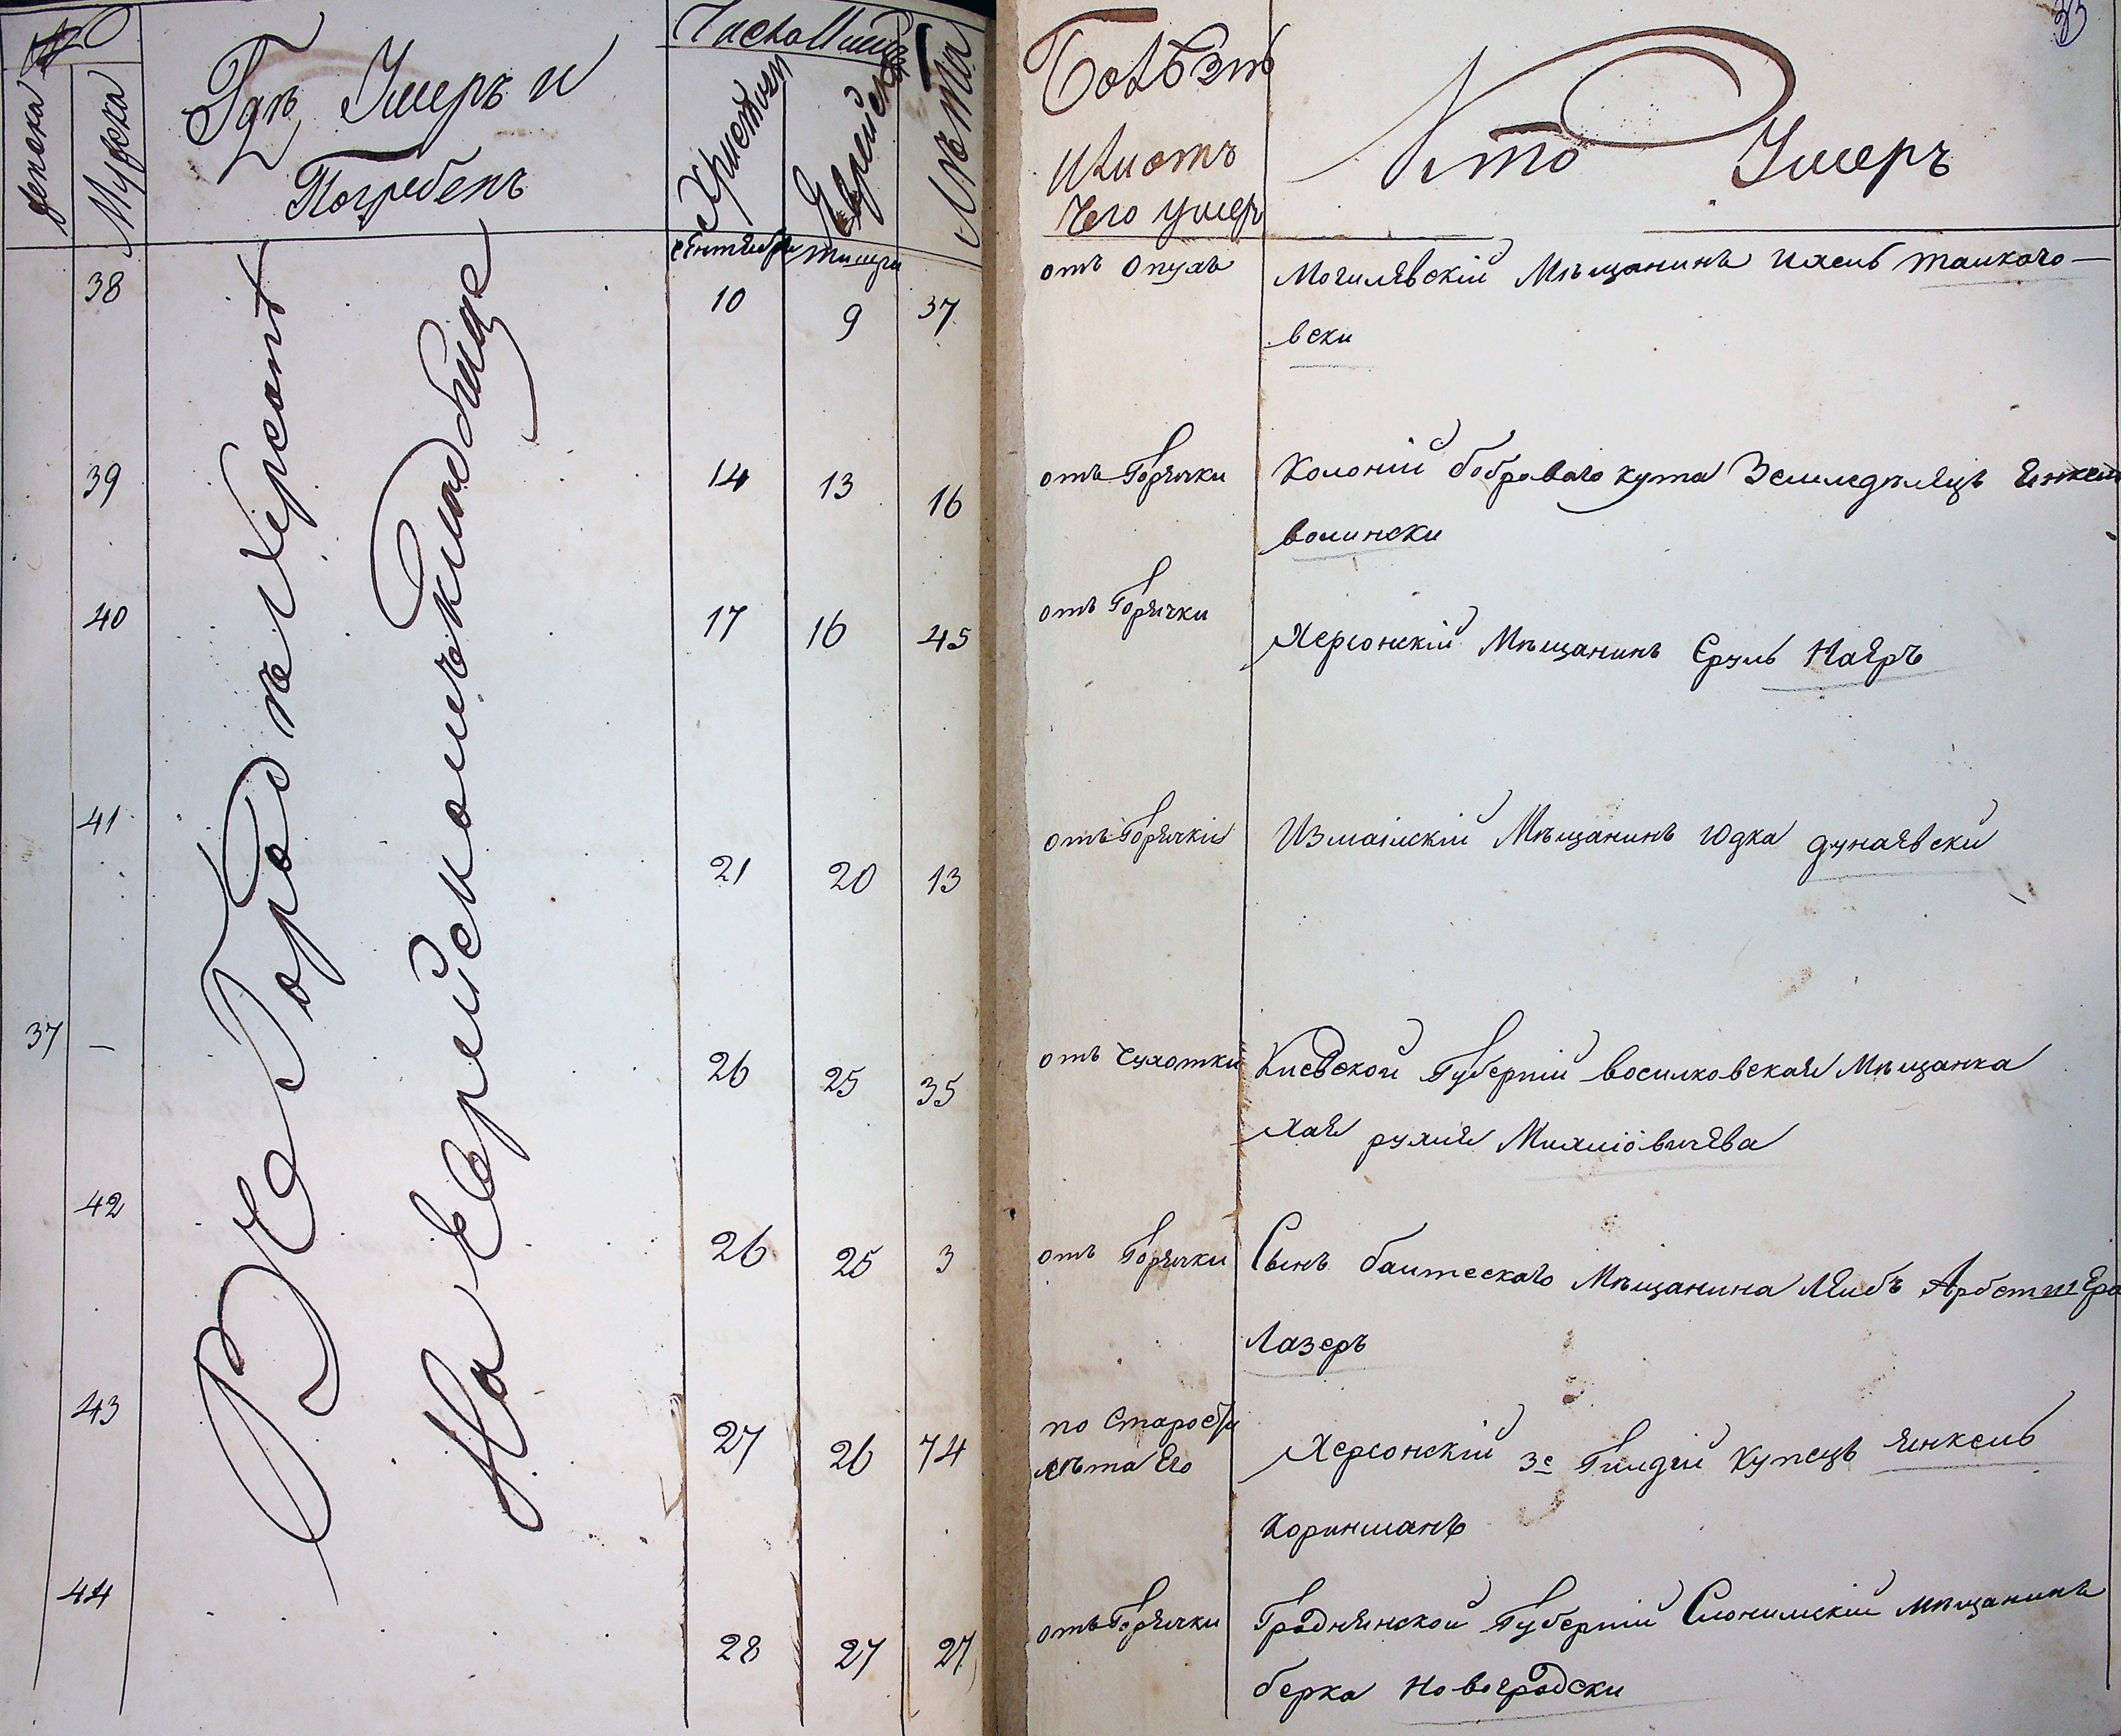 №
женска
Мужска
Гдѣ Умеръ и
Погребенъ
Число Мѣсяцъ
Христіан
Еврейск
Лѣта
Болѣзнь
Или отъ
Чего умеръ
Кто Умеръ
35
Сентября тишри
В Городе Херсоне
На Еврейскомъ Кладбище
38 10 9 37 отъ Опухъ Могилявскій Мѣщанинъ Ихель талкачо-
вски
39 14 13 16 отъ Горячки Колоній бобраваго кута Земледѣлецъ Янкель
волински
40 17 16 45 отъ Горячки Херсонскій Мѣщанинъ Сруль Каяръ
41 21 20 13 отъ Горячкія Измаілскій Мѣщанинъ Юдка дунаявски
37 — 26 25 35 отъ Чухотки Киевской Губерній восилковская Мѣщанка
Хая рухля Михліовичява
42 26 25 3 отъ Горячки Сынъ балтескаго Мѣщанина Лейбъ
Лазеръ
43 27 26 74 по Старости
лѣта Его Херсонскій 3е Гилдій Купецъ Янкель
Коринманъ
44 28 27 27 отъ Горячки Гродненской Губерній Слонимскій мѣщанинъ
берка Новогродски